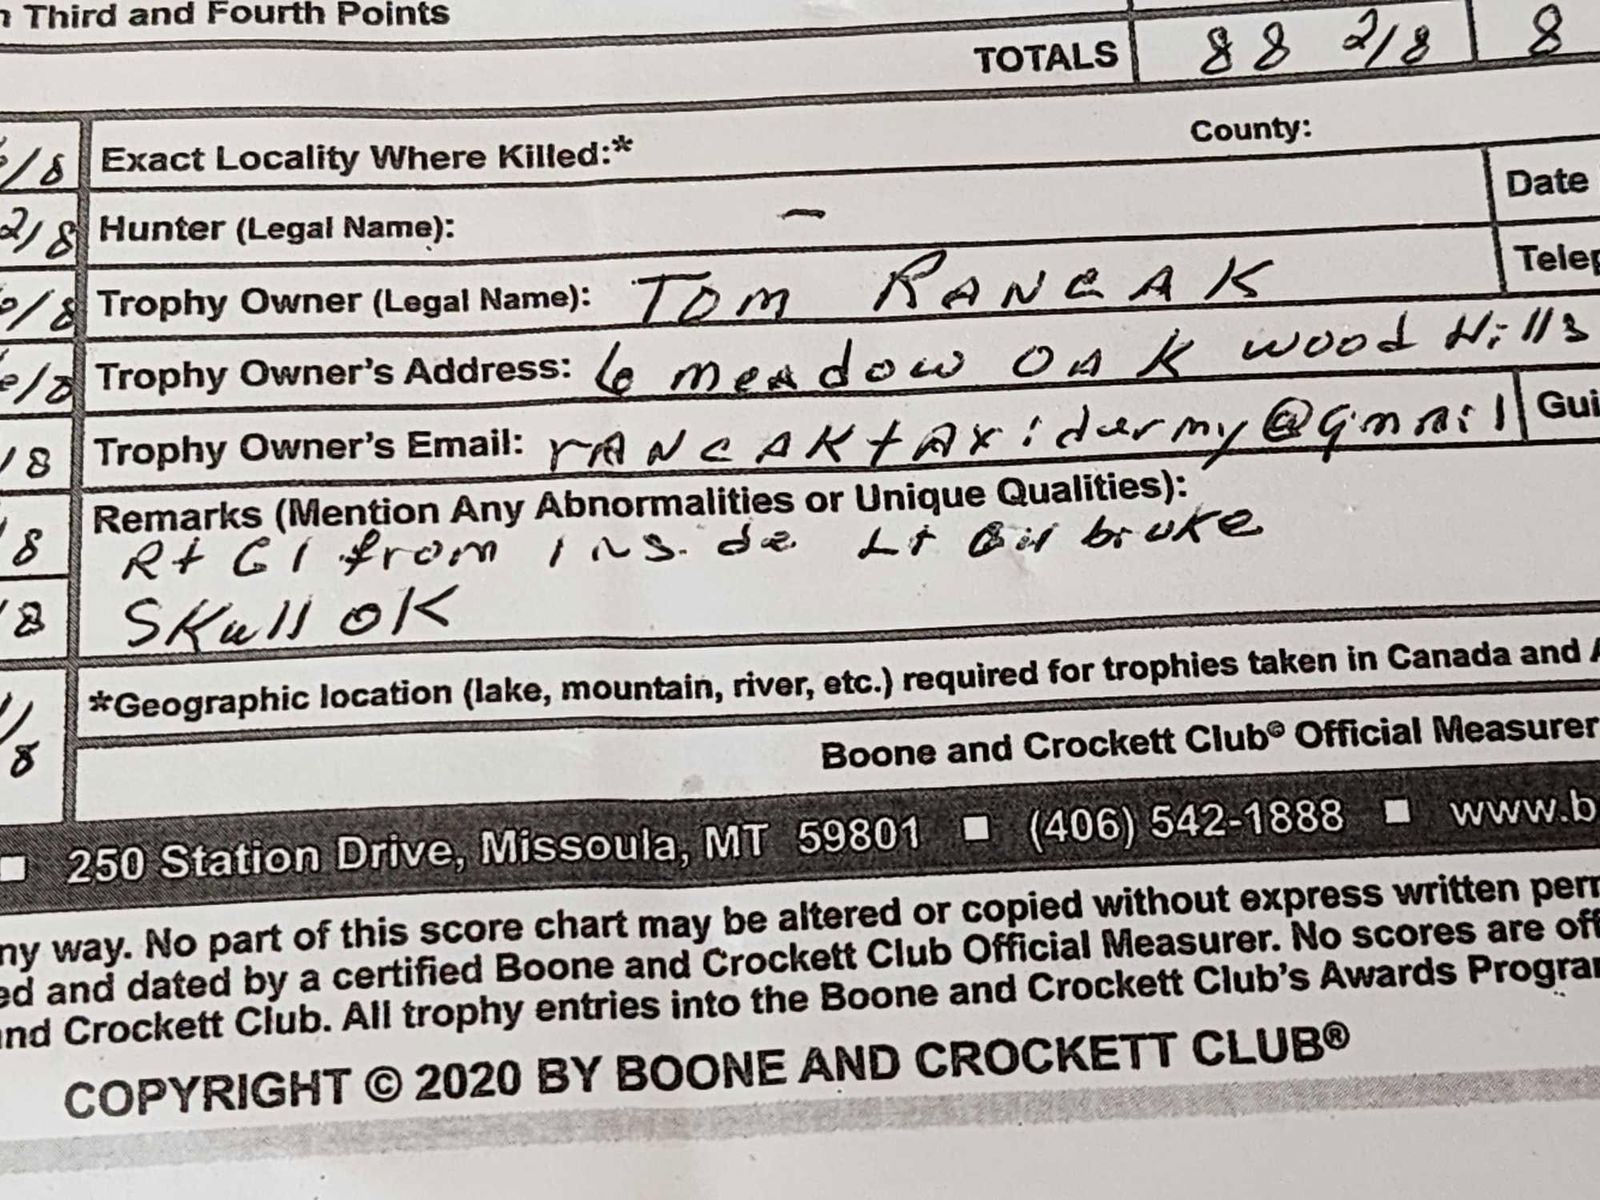 n Third and Fourth Points
TOTALS 88 2/8 8
/8 Exact Locality Where Killed:* County:
2/8 Hunter (Legal Name): — Date
/8 Trophy Owner (Legal Name): TOM RANCAK Telep
/8 Trophy Owner's Address: 6 meadow OAK wood Hills
/8 Trophy Owner's Email: rANCAKtAxidermy@gmail Gui
Remarks (Mention Any Abnormalities or Unique Qualities):
/8 Rt G1 from INSide Lt broke
/8 SKull OK
*Geographic location (lake, mountain, river, etc.) required for trophies taken in Canada and A
/8
Boone and Crockett Club® Official Measurer
■ 250 Station Drive, Missoula, MT 59801 ■ (406) 542-1888 ■ www.b
ny way. No part of this score chart may be altered or copied without express written perm
ed and dated by a certified Boone and Crockett Club Official Measurer. No scores are off
and Crockett Club. All trophy entries into the Boone and Crockett Club's Awards Program
COPYRIGHT © 2020 BY BOONE AND CROCKETT CLUB®